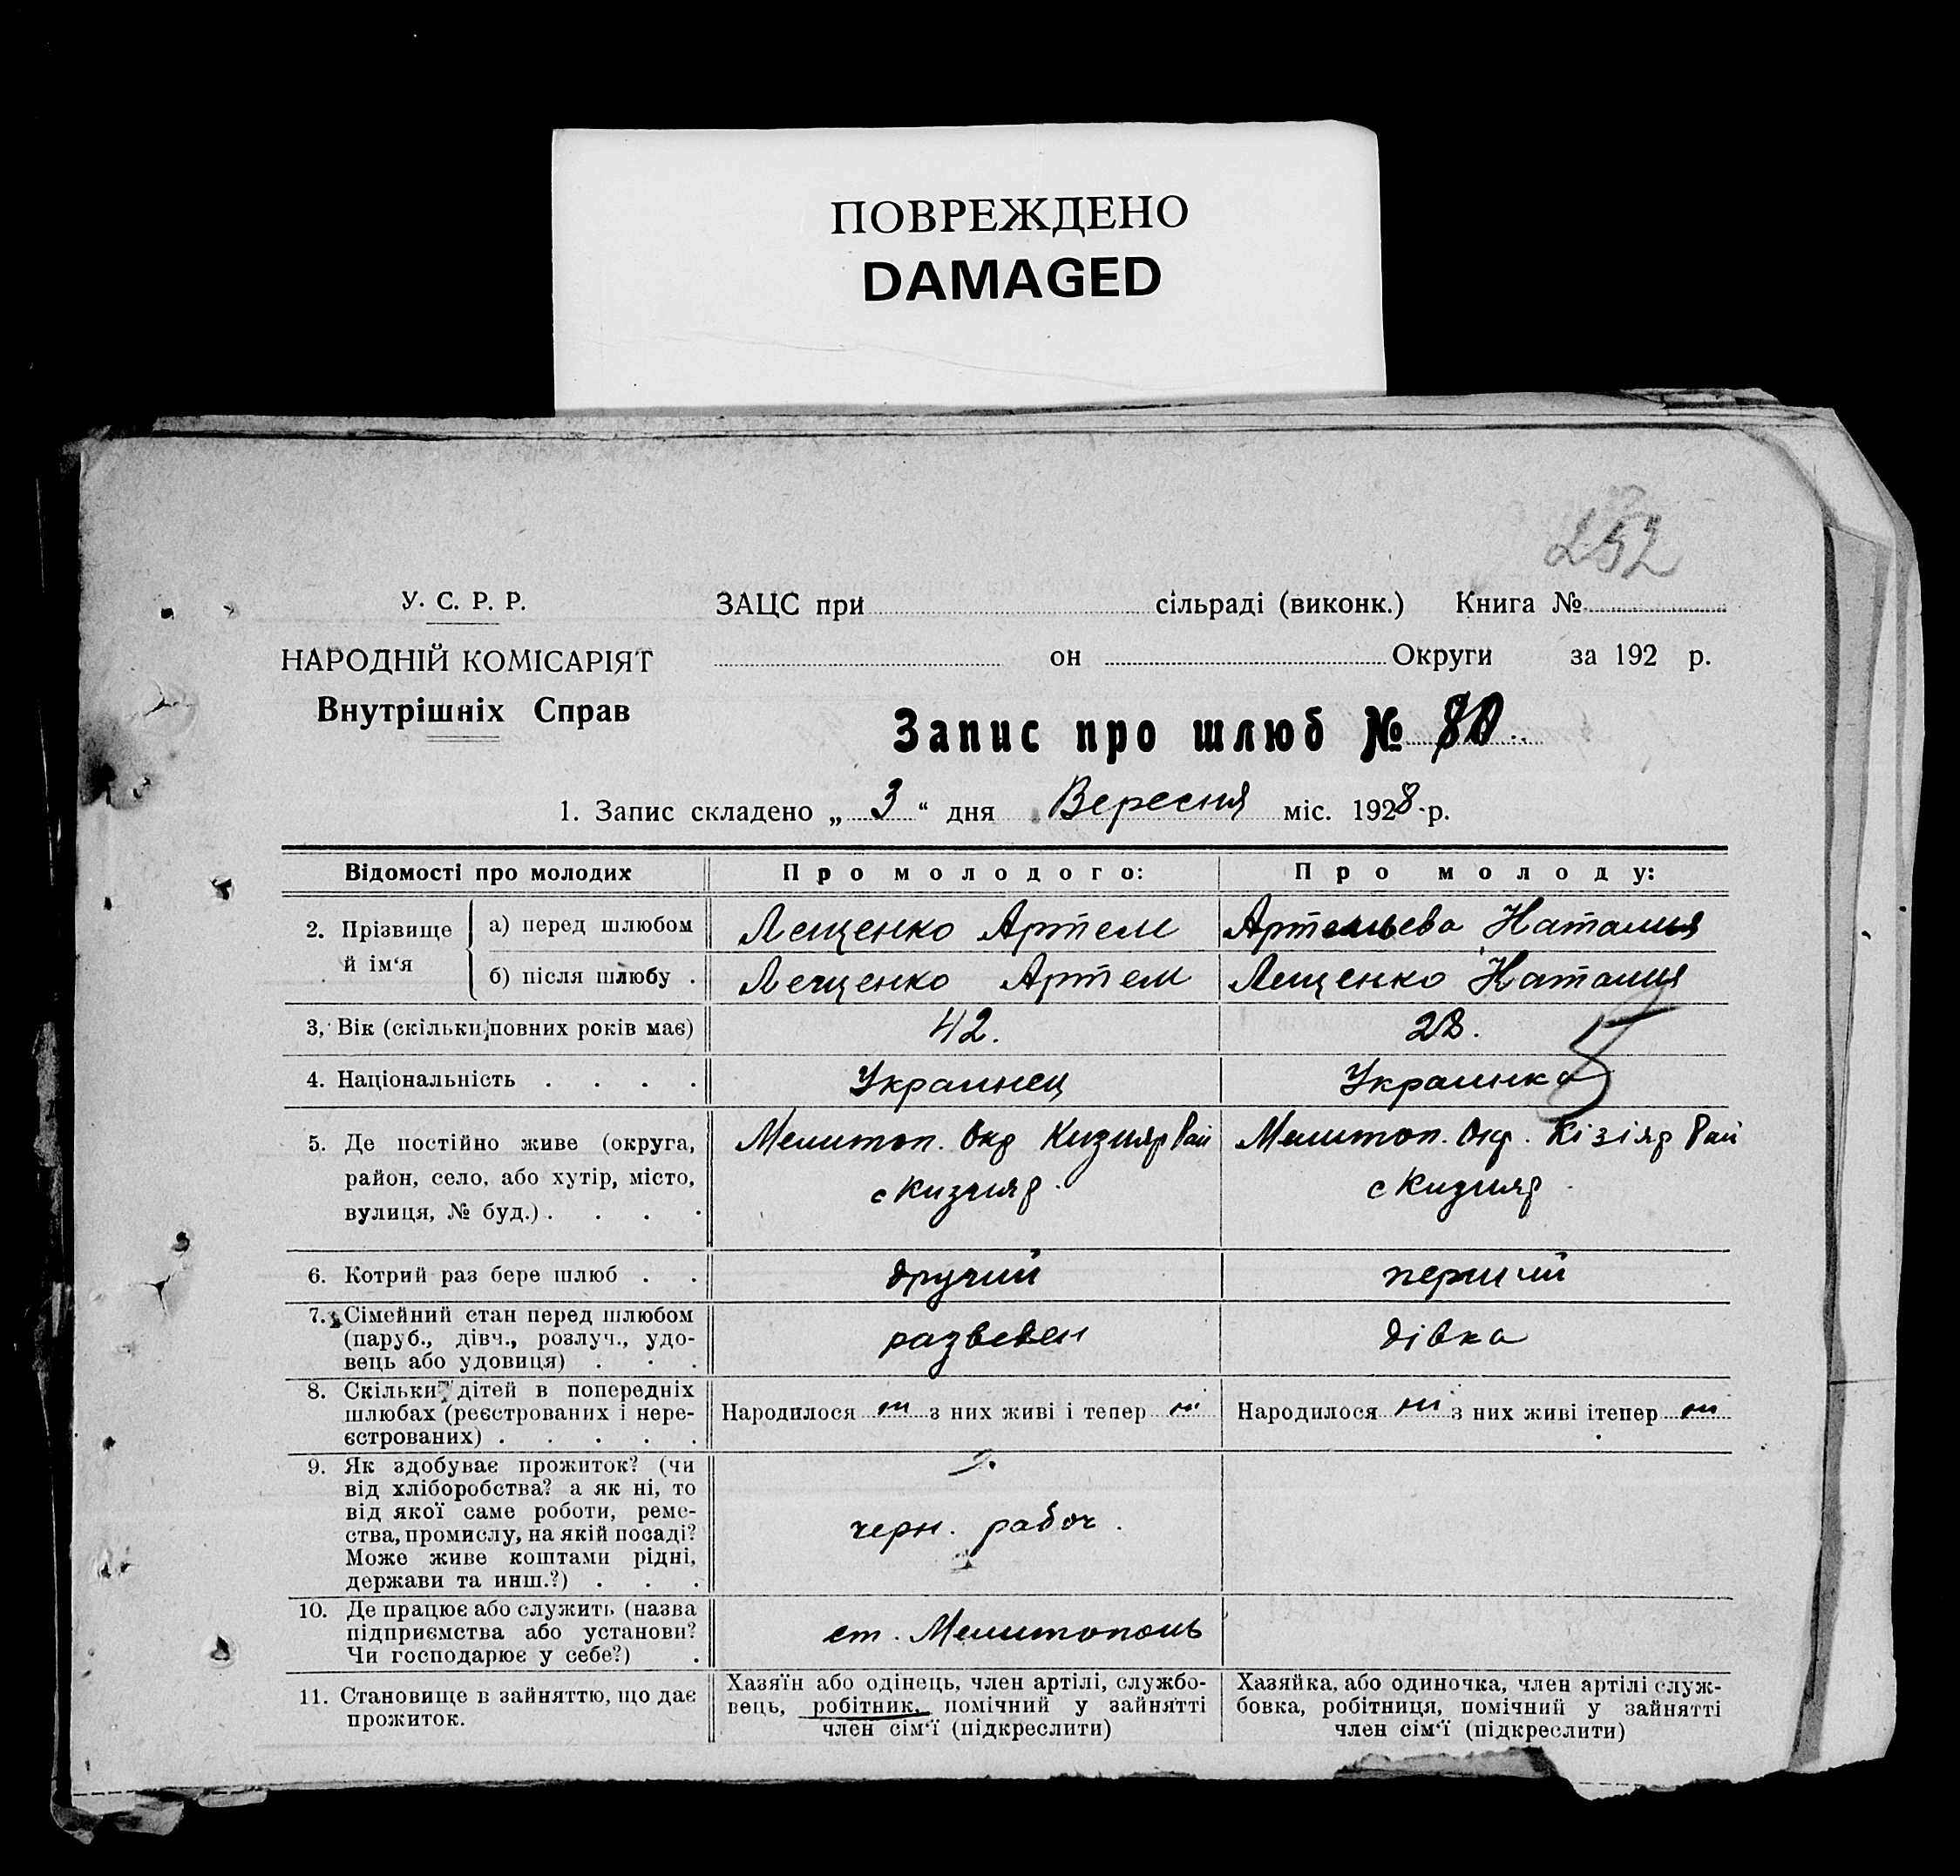 ПОВРЕЖДЕНО
DAMAGED
252
У. С. Р. Р.
НАРОДНІЙ КОМІСАРІЯТ
Внутрішніх Справ
ЗАЦС при сільраді (виконк.) Книга №
он Округи за 192 р.
Запис про шлюб № 80
1. Запис складено „ 3 “ дня Вересня міс. 1928 р.
Відомості про молодих
Про молодого:
Про молоду:
2. Прізвище й ім‘я
а) перед шлюбом
Лещенко Артем
Артемьева Наталия
б) після шлюбу .
Лещенко Артем
Лещенко Наталия
3. Вік (скільки повних років має)
42.
28.
4. Національність . . . .
Украинец
Украинка
5. Де постійно живе (округа,
район, село, або хутір, місто,
вулиця, № буд.) . . . .
Мелитоп. Окр Кизияр Рай
с Кизияр.
Мелитоп. Окр. Кізіяр Рай
с Кизияр
6. Котрий раз бере шлюб . .
другий
перший
7. Сімейний стан перед шлюбом
(паруб., дівч., розлуч., удо-
вець або удовиця) . . .
разведен
дівка
8. Скільки дітей в попередніх
шлюбах (реєстрованих і нере-
єстрованих) . . . . .
Народилося ні з них живі і тепер ні
Народилося ні з них живі ітепер ні
9. Як здобуває прожиток? (чи
від хліборобства? а як ні, то
від якої саме роботи, реме-
ства, промислу, на якій посаді?
Може живе коштами рідні,
держави та инш.?) . . .
черн. рабоч.
10. Де працює або служить (назва
підприємства або установи?
Чи господарює у себе?) .
ст. Мелитополь
11. Становище в зайняттю, що дає
прожиток.
Хазяїн або одінець, член артілі, службо-
вець, робітник, помічний у зайнятті
член сім‘ї (підкреслити)
Хазяйка, або одиночка, член артілі служ-
бовка, робітниця, помічний у зайнятті
член сім‘ї (підкреслити)